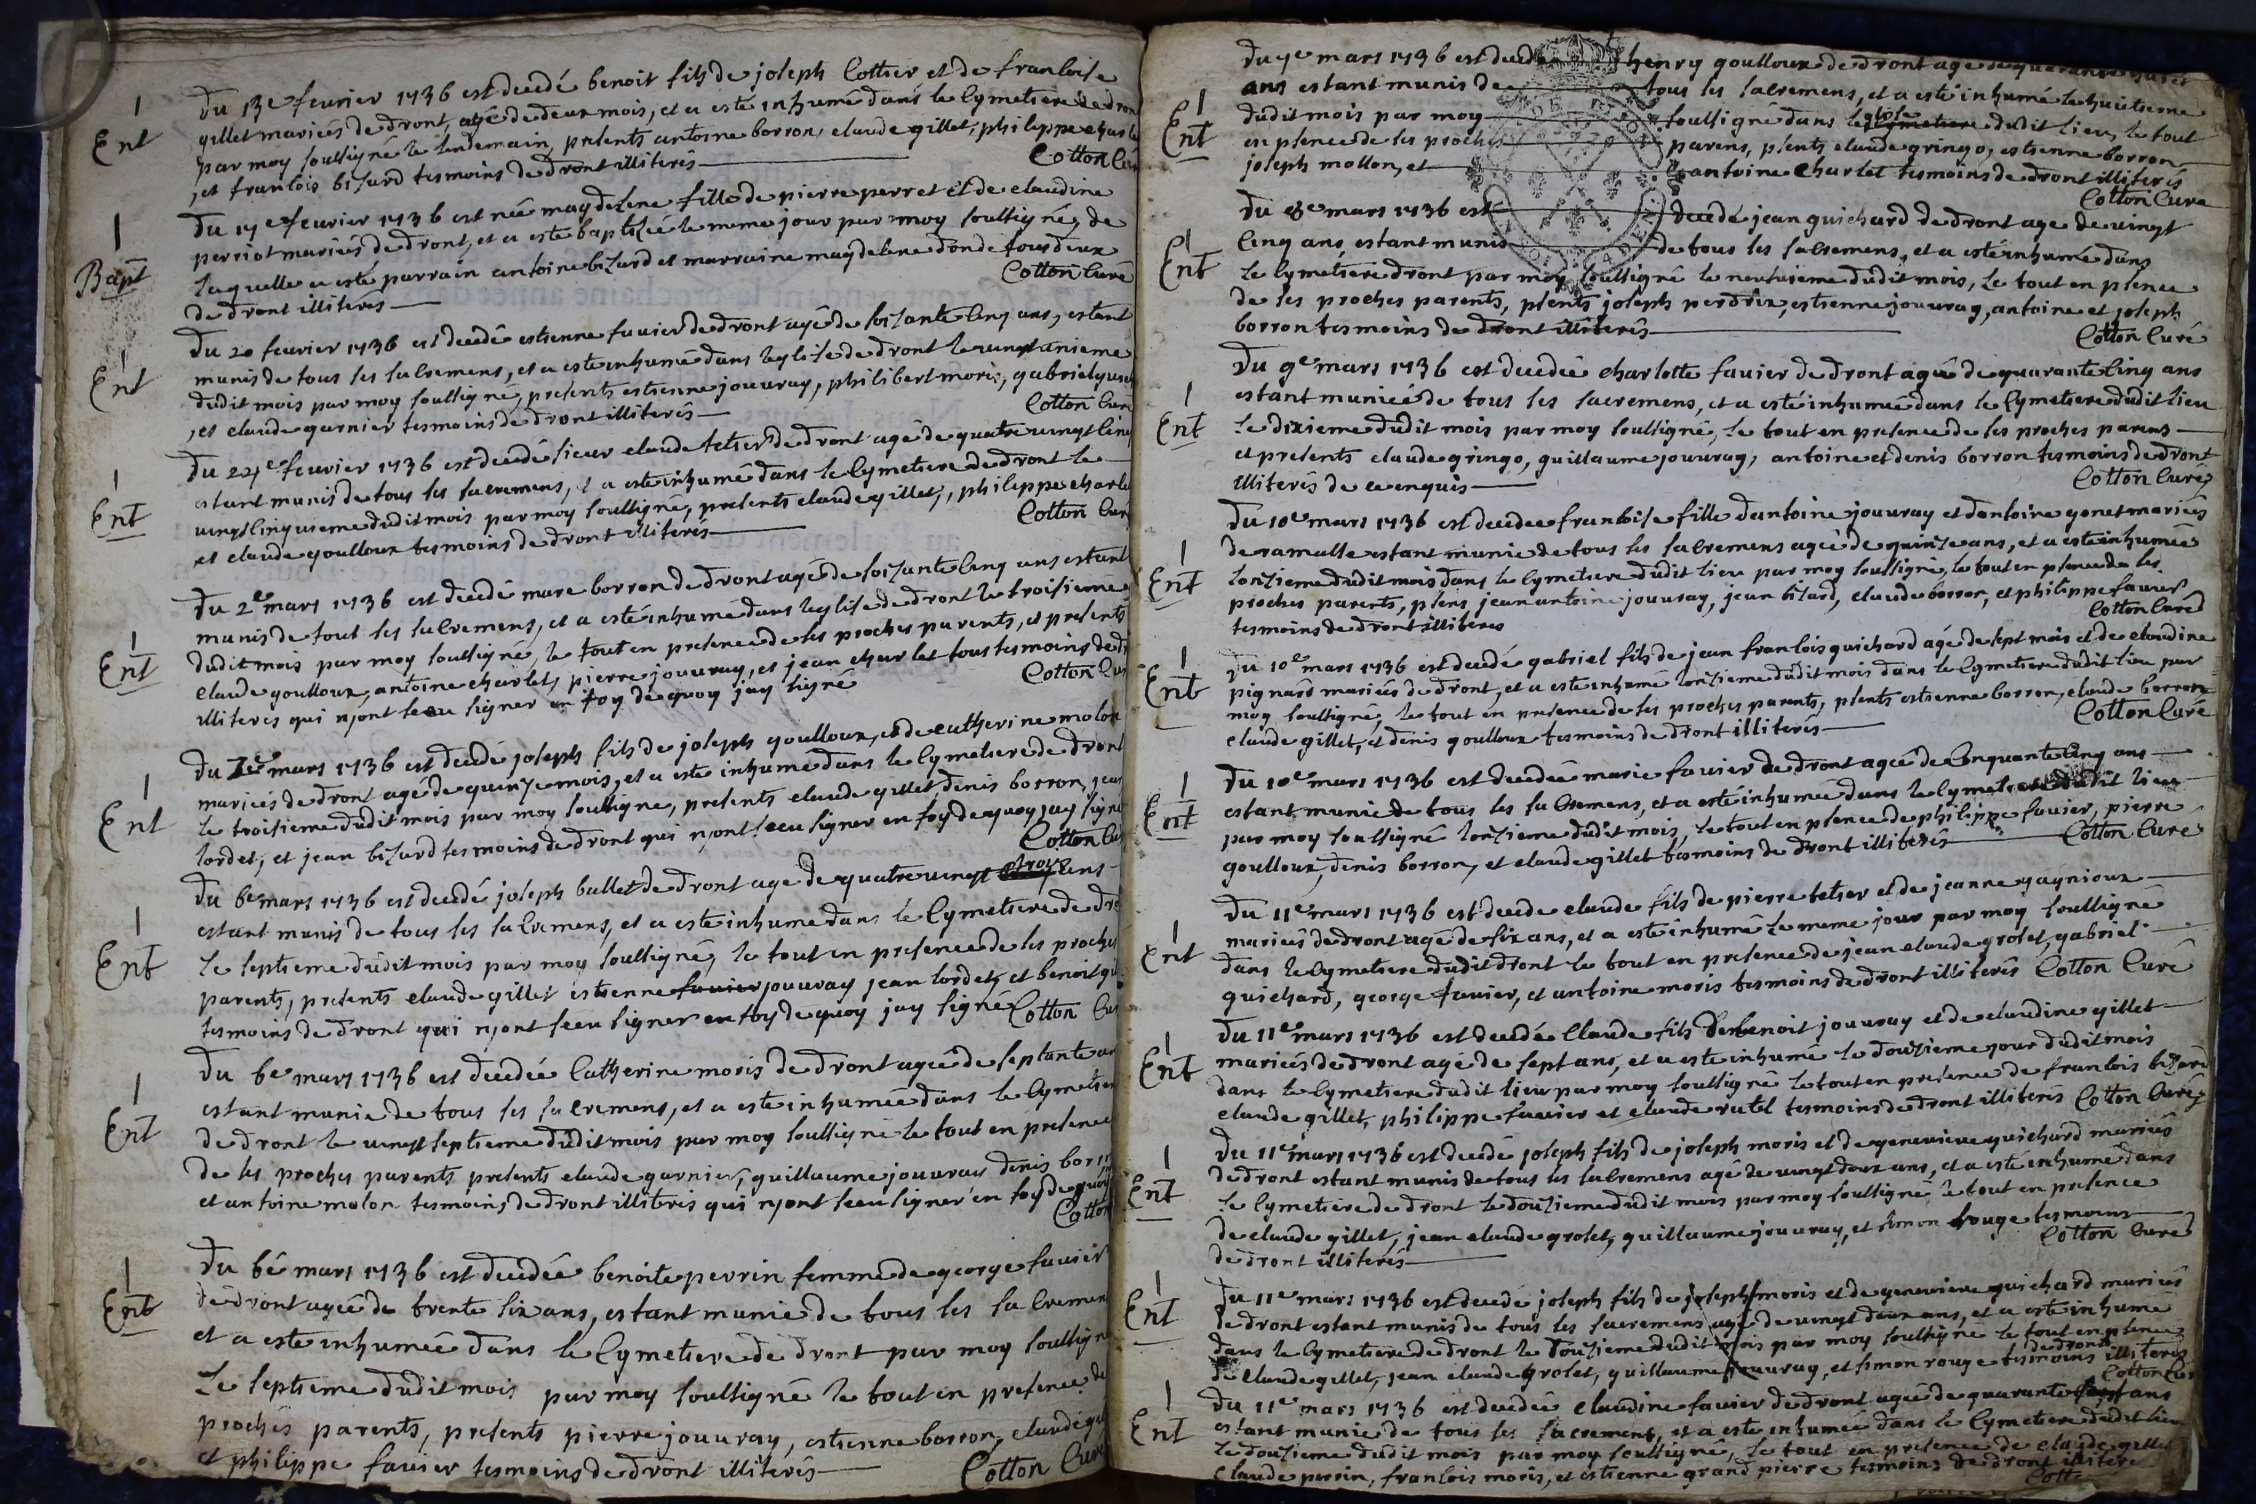 Ent
Du 13e feurier 1736 est decedé benoit fils de joseph Cottier et de francoise
gillet mariés de dront, agé de deux mois, et a esté inhumé dans le Cymetiere de dron
par moy soussigné le lendemain, presents antoine borron, claude gillet, philippe charle
, et francois bizard tesmoins de dront illiterés
Cotton Cur
Bapt
Du 17e feurier 1736 est née magdelene fille de pierre perret et de claudine
perriot mariés de dront, et a esté baptisée le meme jour par moy soussigné, de
laquelle a esté parrain antoine bizard et marraine magdelene donde tous deux
de dront illiterés
Cotton Curé
Ent
Du 20 feurier 1736 est decedé estienne fauier de dront agé de soizante Cinq ans, estant
munis de tous les sacremens, et a esté inhumé dans leglise de dront le vingt unieme
dudit mois par moy soussigné, presents estienne jouuray, philibert moris, gabriel
, et claude garnier tesmoins de dront illiterés
Cotton Curé
Ent
Du 24e feurier 1736 est decedé sieur claude tetier de dront agé de quatre vingt Cinq
estant munis de tous les sacremens, et a esté inhumé dans le Cymetiere de dront le
vingt Cinquieme dudit mois par moy soussigné, presents claude gillet, philippe charle
et claude goulloux tesmoins de dront illiterés
Cotton Cur
Ent
Du 2e mars 1736 est decedé marc borron de dront agé de soizante Cinq ans estant
munis de tout les sacremens, et a esté inhumé dans leglise de dront le troisieme
dudit mois par moy soussigné, le tout en presence de ses proches parents, et presents
claude goulloux, antoine charlet, pierre jouuray, et jean charlet tous tesmoins de d
illiterés qui njont sceu signer en foy de quoy jay signé
Cotton Cur
Ent
Du 2e mars 1736 est decedé joseph fils de joseph goulloux, et de catherine molon
mariés de dront agé de quinze mois, et a esté inhumé dans le Cymetiere de dront
le troisieme dudit mois par moy soussigné, presents claude gillet, denis borron, jean
lordet, et jean bizard tesmoins de dront qui njont sceu signer en foy de quoy jay signé
Cotton Cur
Ent
Du 6e mars 1736 est decedé joseph ballet de dront agé de quatre vingt troys ans
estant munis de tous les sacremens, et a esté inhumé dans le Cymetiere de dro
le septieme dudit mois par moy soussigné, le tout en presence de ses proches
parents, presents claude gillet estienne fauier jouuray jean lordet, et benoit gil
tesmoins de dront qui njont sceu signer en foy de quoy jay signé Cotton Cur
Ent
Du 6e mars 1736 est decedée Catherine moris de dront agée de septante an
estant munie de tous les sacremens, et a esté inhumée dans le Cymetier
de dront le vingt septieme dudit mois par moy soussigné le tout en presence
de ses proches parents presents claude garnier, guillaume jouuray denis borr
et antoine molon tesmoins de dront illiterés qui njont sceu signer en foy de quoy
Cotton
Ent
Du 6e mars 1736 est decedée benoite perrin femme de george fauier
de dront agée de trente six ans, estant munie de tous les sacremen
et a esté inhumée dans le Cymetiere de dront par moy soussigné
Le septieme dudit mois par moy soussigné le tout en presence de
proches parents, presents pierre jouuray, estienne borron, claude gil
et philippe fauier tesmoins de dront illiterés
Cotton Curé
Ent
Du 7e mars 1736 est decedé henry goulloux de dront agé de quarante
ans estant munis de tous les sacremens, et a esté inhumé le huitieme
dudit mois par moy soussigné dans leglise cymetiere dudit lieu, le tout
en plence de ses proches parens, plents claude gringo, estienne borron
joseph mollon, et antoine Charlet tesmoins de dront illiterés
Cotton Curé
Ent
Du 8e mars 1736 est decedé jean guichard de dront agé de vingt
Cinq ans, estant munis de tous les sacremens, et a esté inhumé dans
Le Cymetiere dront par moy soussigné le neufuieme dudit mois, le tout en plence
de ses proches parents, plents joseph perdrix, estienne jouuray, antoine et joseph
borron tesmoins de dront illiterés
Cotton Curé
Ent
Du 9e mars 1736 est decedée charlotte fauier de dront agée de quarante Cinq ans
estant munieé de tous les sacremens, et a esté inhumée dans le Cymetiere dudit lieu
le dixieme dudit mois par moy soussigné, le tout en presence de ses proches parens
et presents claude gringo, guillaume jouuray, antoine et denis borron tesmoins de dront
illiterés de ce enquis
Cotton Curé
Ent
Du 10e mars 1736 est decedee francoise fille dantoine jouuray et dantoine gonet mariés
de ramasse estant munie de tous les sacremens agée de quinze ans, et a esté inhumée
lonzieme dudit mois dans le Cymetiere dudit lieu par moy soussigné, le tout en plence de ses
proches parents, plens, jean antoine jouuray, jean bizard, claude borron, et philippe fauier
tesmoins de dront illiterés
Cotton Curé
Ent
Du 10e mars 1736 est decedé gabriel fils de jean francois guichard agé de sept mois et de claudine
pignard mariés de dront, et a esté inhumé lonzieme dudit mois dans le Cymetiere dudit lieu par
moy soussigné, le tout en presence de ses proches parents, plents estienne borron, claude borron
claude gillet, et denis goulloux tesmoins de dront illiterés
Cotton Curé
Ent
Du 10e mars 1736 est decedée marie fauier de dront agée de Cinquante Cinq ans
estant munie de tous les sacremens, et a esté inhumée dans le Cymetiere dudit lieu
par moy soussigné lonzieme dudit mois, le tout en plence de philippe fauier, pierre
goulloux, denis borron, et claude gillet tesmoins de dront illiterés
Cotton Curé
Ent
Du 11e mars 1736 est decedé claude fils de pierre tetier et de jeanne gagnioux
mariés de dront agé de six ans, et a esté inhumé le meme jour par moy soussigné
dans le Cymetiere dudit dront le tout en presence de jean claude grolet, gabriel
guichard, george fauier, et antoine moris tesmoins de dront illiterés Cotton Curé
Ent
Du 11e mars 1736 est decedé Claude fils de benoit jouuray et de claudine gillet
mariés de dront agé de sept ans, et a esté inhumé le douzieme jour dudit mois
dans le Cymetiere dudit lieu par moy soussigné le tout en presence de francois bizard
claude gillet, philippe fauier et claude tesmoins de dront illiterés Cotton Curé
Ent
Du 11e mars 1736 est decedé joseph fils de joseph moris et de geneuieue guichard mariés
de dront estant munis de tous les sacremens agé de vingt deux ans, et a esté inhumé dans
le Cymetiere de dront le douzieme dudit mois par moy soussigné, le tout en presence
de claude gillet, jean claude grolet, guillaume jouuray, et simon rouge tesmoins
de dront illiterés
Cotton Curé
Ent
Du 11e mars 1736 est decedé joseph fils de joseph moris et de geneuieue guichard mariés
de dront estant munis de tous les sacremens agé de vingt deux ans, et a esté inhumé
dans le Cymetiere de dront le douzieme dudit mois par moy soussigné le tout en plence
de claude gillet, jean claude grolet, guillaume jouuray, et simon rouge tesmoins de dront illiterés
Cotton Cur
Ent
Du 11e mars 1736 est decedée claudine fauier de dront agée de quarante sept ans
estant munie de tous les sacremens, et a esté inhumée dans le Cymetiere dudit lieu
le douzieme dudit mois par moy soussigné, le tout en presence de claude gillet
claude perrin, francois moris, et estienne grand pierre tesmoins de dront illiteré
Cotto